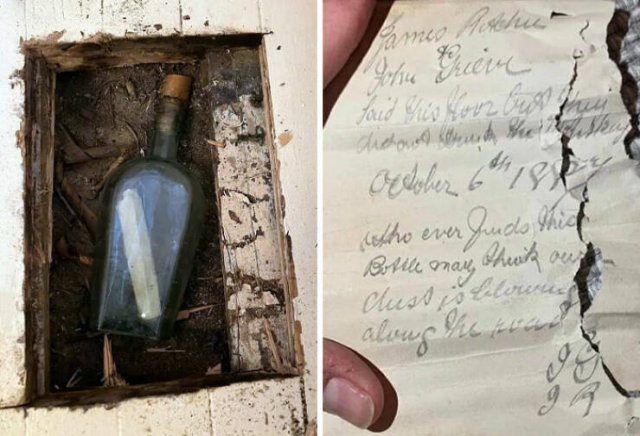 James Ritchie
&
John Grieve
laid this floor but they
did not drink the whiskey
October 6th 1887
Who ever finds this
Bottle may think our
dust is blowing
along the road
J G
J R